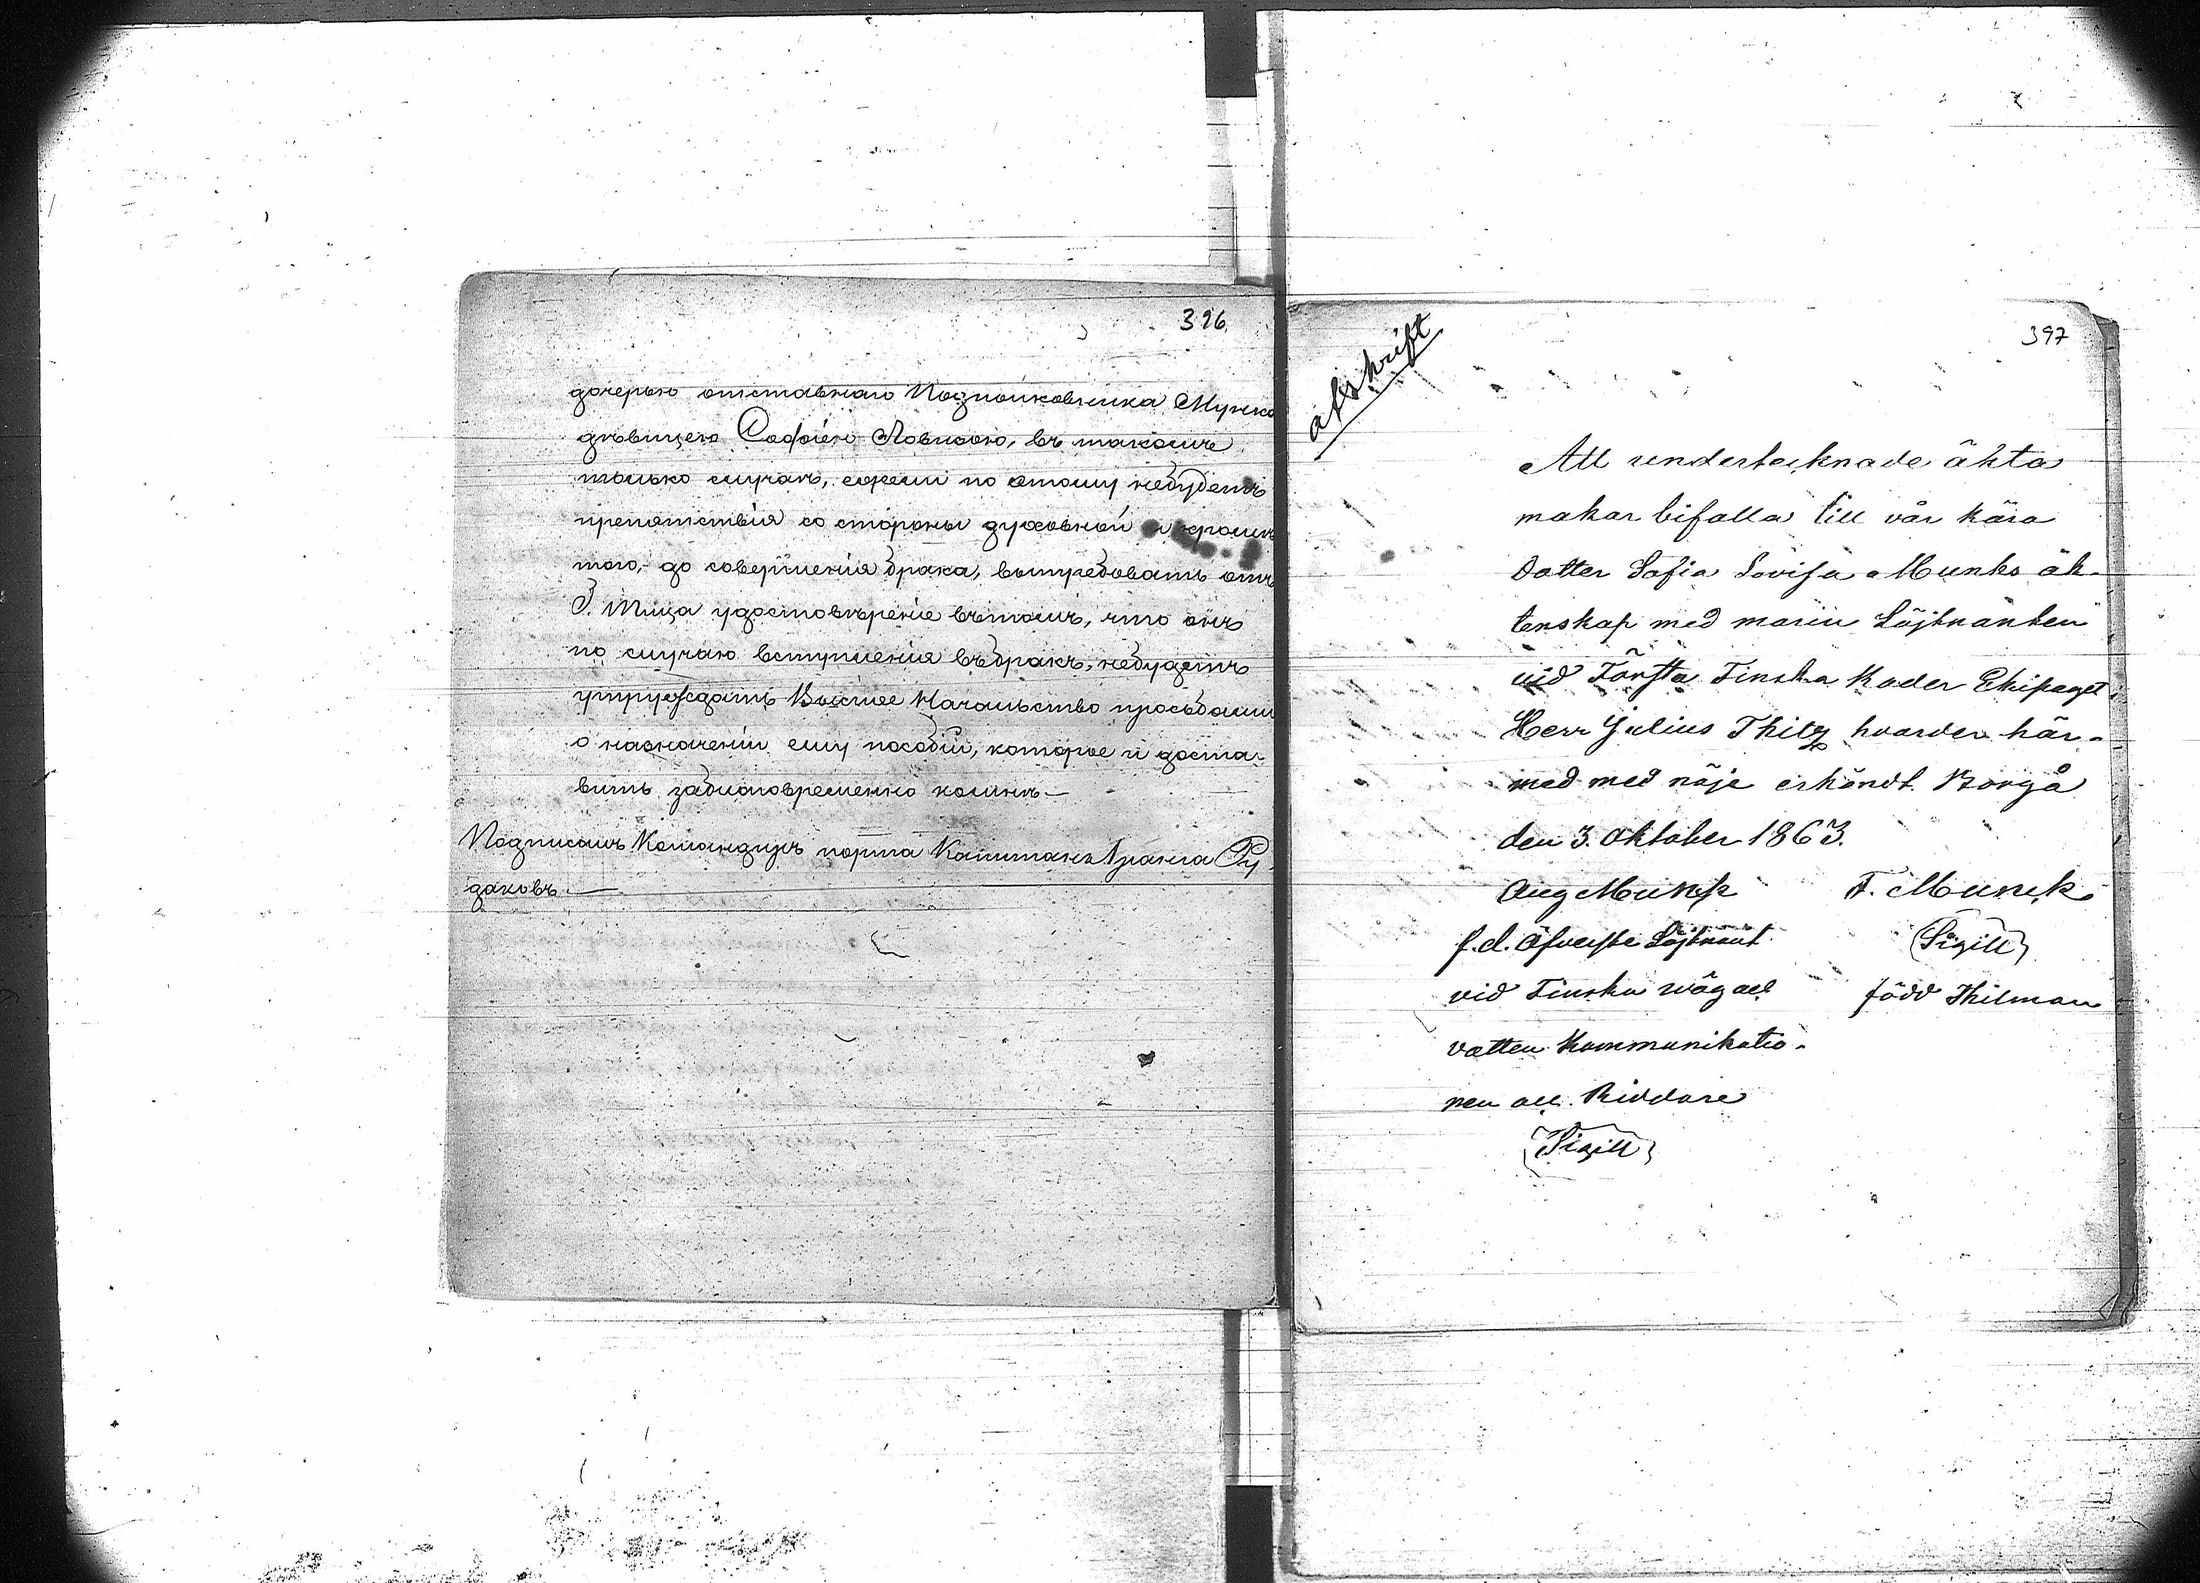 396
дочерью отставнаго Подполковника Мунка
дѣвицею Софіею Ловисою, въ такомъ
только случаѣ, ежели по этому небудетъ
препятствія со стороны духовной и кромѣ
того, до совершенія брака, вытребовать отъ
Г. Тица удостовѣреніе въ томъ, что онъ
по случаю вступленія въ бракъ, небудетъ
утруждать Высшее Начальство просьбами
о назначеніи ему пособій, которое и доста-
вить заблаговременно ко мнѣ.—
Подписалъ Командиръ порта Капитанъ 1 ранга Ру
даковъ.—
397
afskrift
Att undertecknade äkta
makar bifalla till vår kära
dotter Sofia Lovisa Munks äk-
tenskap med marin Löjtnanten
vid Första Finska Kader Ekipaget
Herr Julius Thitz hvarder här-
med med nöje erkändt Borgå
den 3. Oktober 1863.
Aug Munck F. Munck
f.d. Öfverste Löjtnant (Sigill)
vid Finska wäg och född Thilman
vatten Kommunikatio-
nen och Riddare
(Sigill)